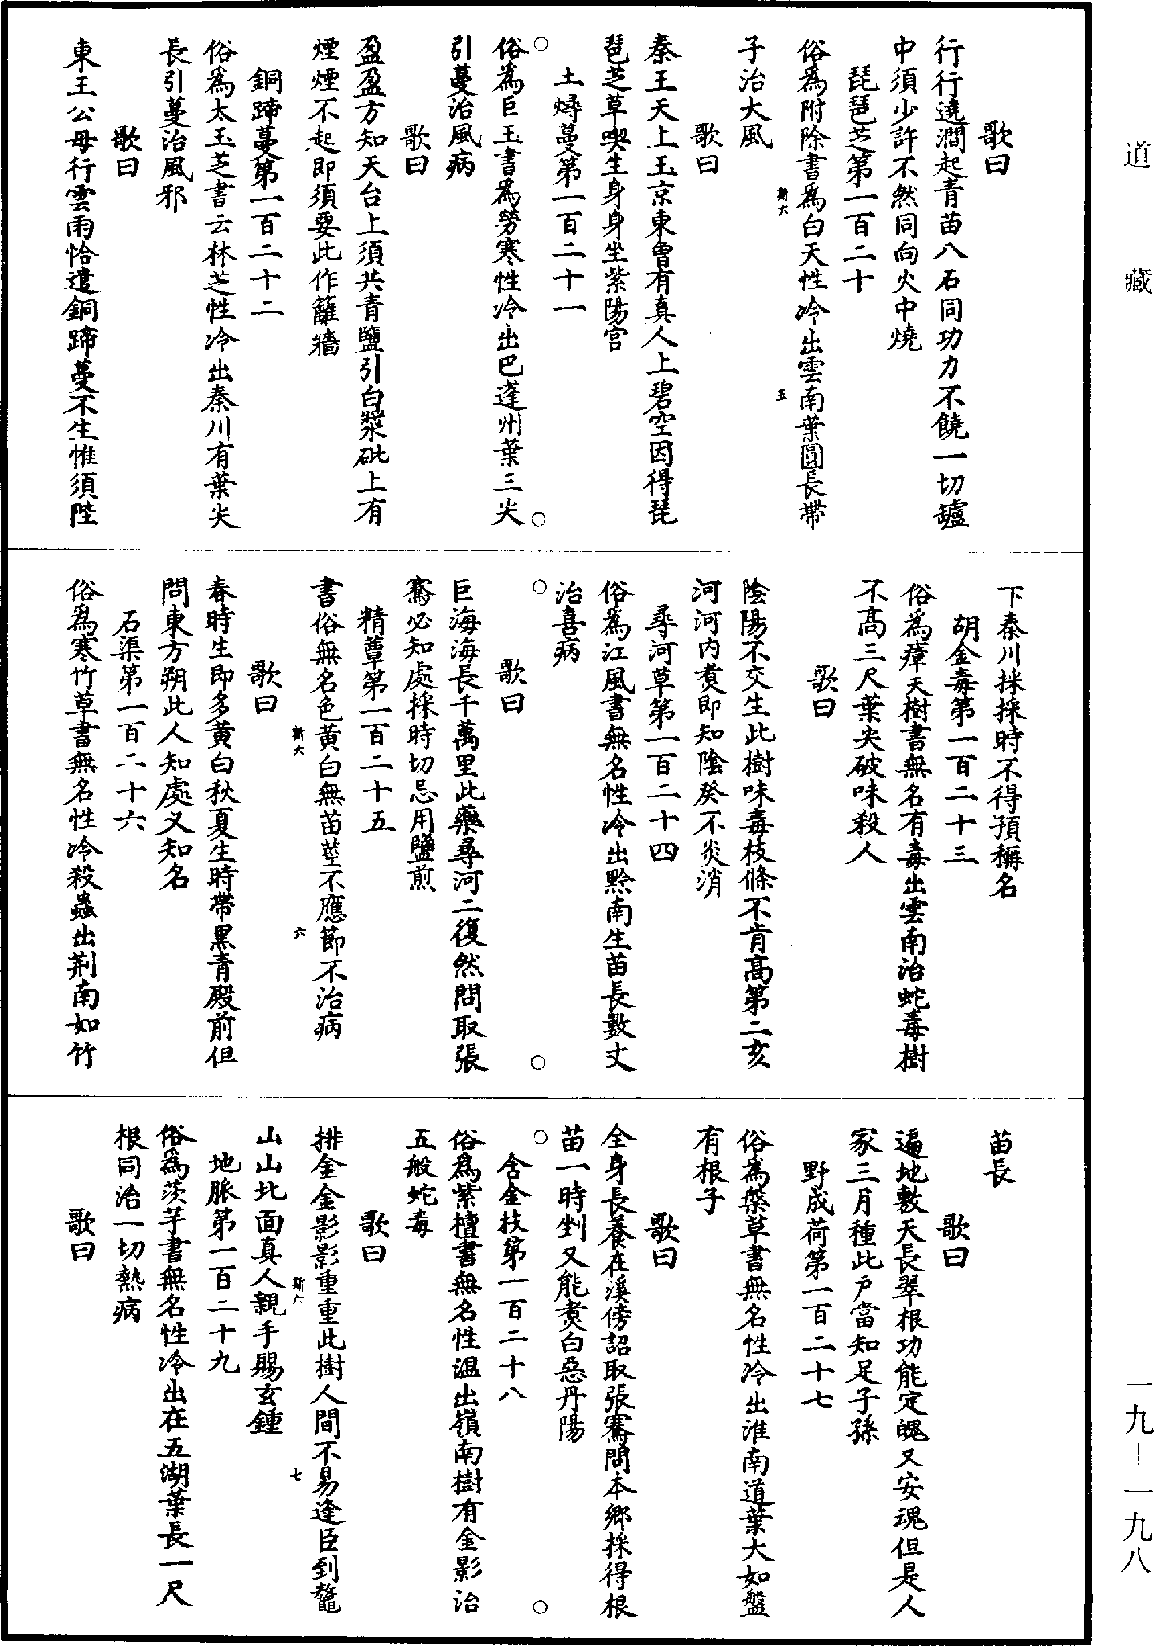 道藏
歌曰
行行遶澗起青苗八石同功力不饒一切鑪
中須少許不然同向火中燒
琵琶芝第一百二十
俗為附除書為白天性冷出雲南葉圓長帶
斯六
五
子治大風
歌曰
秦王天上玉京東曾有真人上碧空因得琵
琶芝草喫生身身坐紫陽宮
土燖蔓第一百二十一
俗為巨玉書為勞寒性冷出巴蓬州葉三尖
引蔓治風病
歌曰
盈盈方知天台上須共青鹽引白漿砒上有
煙煙不起即須要此作籬牆
銅蹄蔓第一百二十二
俗為太玉芝書云林芝性冷出秦川有葉尖
長引蔓治風邪
歌曰
東王公母行雲雨恰遣銅蹄蔓不生惟須陛
下秦川採採時不得預稱名
胡金毒第一百二十三
俗為瘴天樹書無名有毒出雲南治蛇毒樹
不高三尺葉尖破味殺人
歌曰
陰陽不交生此樹味毒枝條不肯高第二亥
河河內煑即知陰癸不炎消
尋河草第一百二十四
俗為江風書無名性冷出黔南生苗長數丈
治喜病
歌曰
巨海海長千萬里此藥尋河二復然問取張
騫必知處採時切忌用鹽煎
精蕈第一百二十五
書俗無名色黃白無苗莖不應節不治病
斯六
六
歌曰
春時生即多黃白秋夏生時帶黑青殿前但
問東方朔此人知處又知名
石渠第一百二十六
俗為寒竹草書無名性冷殺蟲出荊南如竹
苗長
歌曰
遍地敷天長翠根功能定魄又安魂但是人
家三月種此戶當知足子孫
野成荷第一百二十七
俗為槃草書無名性冷出淮南道葉大如盤
有根子
歌曰
全身長養在溪傍詔取張騫問本鄉採得根
苗一時剉又能煑白惡丹陽
含金枝第一百二十八
俗為紫檀書無名性溫出嶺南樹有金影治
五般蛇毒
歌曰
排金金影影重重此樹人間不易逢臣到鼇
斯六
七
山山北面真人親手賜玄鍾
地脈第一百二十九
俗為茨芋書無名性冷出在五湖葉長一尺
根同治一切熱病
歌曰
一九-一九八